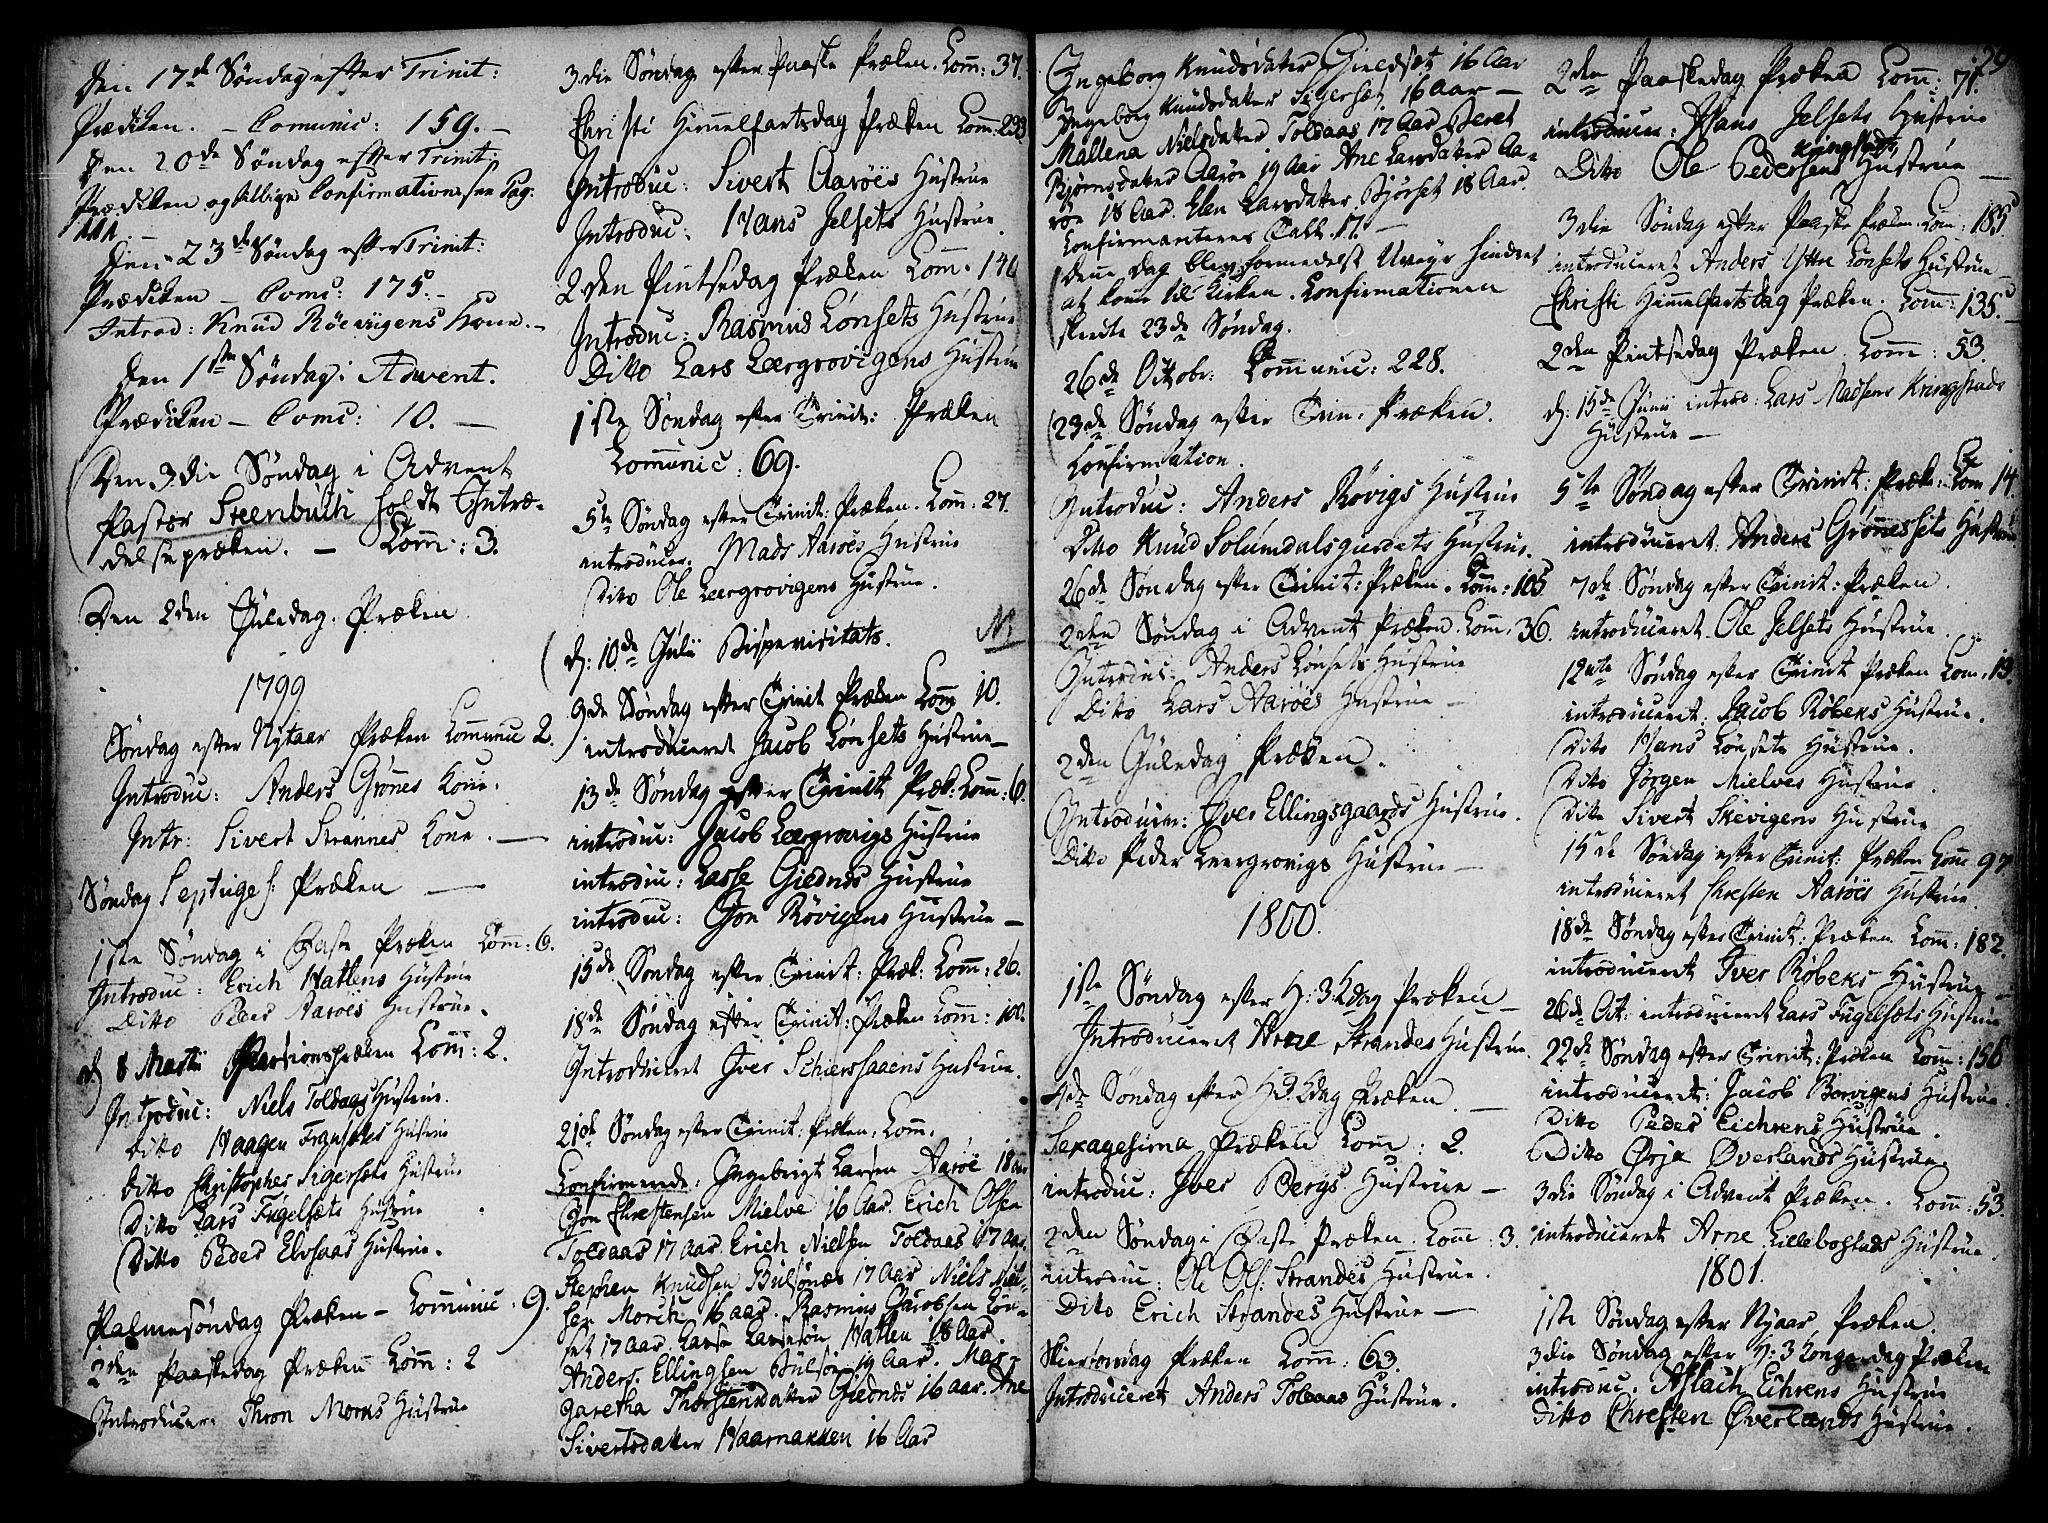 Den 17de Søndag efter Trinit:
Prædiken. – Comunic: 159. –
Den 20de Søndag efter Trinit:
Prædiken og tillige Confirmation see Pag:
111.
Den 23de Søndag efter Trinit:
Prædiken – Comc: 175. –
Introd: Knud Röevigens Kone. –
Den 1ste Søndag i Advent.
Prædiken – Comc: 10. –
Den 3die Søndag i Advent
Pastor Steenbuch holdt Intræ-
delsepræken. – Comm: 3.
Den 2den Juledag. Præken
1799
Søndag efter Nytaar Præken Communic 2.
Introduc: Anders Grønes Kone.
Intr: Sivert Strannes Kone. –
Søndag Septuges: Præken –
1ste Søndag i Faste Præken Comm: 6.
Introduc: Erich Hatlens Hustrue
Ditto Peder Aaröes Hustrue.
d: 8 Martii Passionspræken Comm: 2.
Introduc: Niels Toldaas Hustrue.
Ditto Haagen Hustrue
Ditto Christopher Sigersæts Hustrue
Ditto Lars Fugelsæts Hustrue
Ditto Peder Elvsaas Hustrue.
Palmesøndag Præken – Communic: 9.
2den Paaskedag Præken Comm: 2
Introducer: Thron Morks Hustrue
3die Søndag efter Paaske Præken. Comm: 37.
Christi Himmelfartsdag Præken Comm: 293
Introduc: Sivert Aaröes Hustrue
Introduc: Hans Jelsets Hustrue
2den Pintsedag Præken Com. 146
Introduc: Rasmus Lönsets Hustrue
Ditto Lars Leergrovigens Hustrue
1ste Søndag efter Trinit: Præken
Communic: 69.
5te Søndag efter Trinit: Præken. Comm: 27.
introducer. Mads Aaröes Hustrue
Ditto Ole Leergrovigens Hustrue.
d: 10de Julii Bispevisitats.
9de Søndag efter Trinit Præken Comm 10.
introduceret Jacob Lönsets Hustrue –
13de Søndag efter Trinit Præk: Comm: 6.
introduc: Jacob Leergrovigs Hustrue
introduc: Lasse Giednes Hustrue
introduc: Jon Rövigens Hustrue –
15de Søndag efter Trinit: Præk: Comm: 26.
18de Søndag efter Trinit: Præken Comm: 100.
Introduceret Iver Schiersaaens Hustrue.
21de Søndag efter Trinit: Præken. Comm.
Confirmerede: Ingebrigt Larsen Aaröe 18 Aar
Jon Chrestensen Mielve 16 Aar. Erich Olsen
Toldaas 17 Aar. Erich Nielsen Toldaas 17 Aar.
Stephen Knudsen Bulsönæs 17 Aar Niels Niel-
sen Morch 16 aar. Rasmus Jacobsen Lön-
set 17 aar. Lasse Larsesön Hatlen 18 Aar.
Anders Ellingsen 19 Aar. Mar-
garetha Thorstensdatter Giednes 16 aar. Ane
Sivertsdatter Haarnakken 16 Aar
Ingeborg Knudsdatter Gieldset 16 Aar
Ingeborg Knudsdatter Sigerset. 16 Aar –
Mallena Nielsdatter Toldaas 17 Aar. Beret
Bjørnsdatter Aaröe 19 Aar Ane Larsdatter Aa-
röe 18 Aar. Elen Larsdatter Bjørset 18 Aar.
Confirmanteres Tall 17. –
Denne Dag blev formedelst Uveyr hindret
at komme til Kirken. Confirmationen
skeedte 23de Søndag.
26de Octobr: Communic: 228.
23de Søndag efter Trin: Præken.
Confirmation.
Introduc: Anders Rövigs Hustrue
Ditto Knud Solumdalsgierdets Hustrue.
26de Søndag efter Trinit: Præken. Comm: 105.
2den Søndag i Advent Præken. Comm: 36.
Introduc: Anders Lönsets Hustrue
Ditto Lars Aaröes Hustrue –
2den Juledag Præken.
Introducer: Iver Ellingsgaards Hustrue.
Ditto Peder Leergrovigs Hustrue –
1800.
1ste Søndag efter H: 3 K dag Præken –
Introduceret Arne Strandes Hustrue.
4de Søndag efter H 3 K dag Præken. –
Sexagesima Præken Comm: 2.
introduc: Iver Bergs Hustrue –
2den Søndag i Faste Præken. Comm: 3.
introduc: Ole Ols: Strandes Hustrue.
Ditto Erich Strandes Hustrue –
Skiertorsdag Præken Comm: 63.
Introduceret Anders Toldaas Hustrue.
29
2den Paaskedag Præken Comm: 71.
introducer: Hans Jelsets Hustrue
Kringstads
Ditto Ole Pedersens Hustrue –
3die Søndag efter Paaske Præken. Com: 185
introduceret Anders Yttre Lönsets Hustrue –
Christi Himmelfartsdag Præken. Comm: 135. –
2den Pintsedag Præken. Comm: 53.
d: 15de Junii introd: Lars Madsens Kringstads
Hustrue –
5te Søndag efter Trinit: Præk: Com 14.
introduceret Anders Grønessets Hustrue
7de Søndag efter Trinit: Præken.
introduceret Ole Jelsets Hustrue.
12vte Søndag efter Trinit Præken Com: 13.
introduceret: Jacob Röbeks Hustrue.
Ditto Hans Lönsets Hustrue.
Ditto Jörgen Mielves Hustrue.
Ditto Sivert Skevigens Hustrue
15de Søndag efter Trinit: Præken Comm 97.
introduceret Chresten Aaröes Hustrue.
18de Søndag efter Trinit: Præken Comm: 182.
introduceret Iver Röbeks Hustrue –
26de Oct: introduceret Lars Fugelsæts Hustrue
22de Søndag efter Trinit: Præken Comm: 156
introduceret: Jacob Hustrue.
Ditto Peder Eichrens Hustrue.
Ditto Örja Överlands Hustrue
3die Søndag i Advent Præken. Comm: 53.
introduceret Arne Lillebostads Hustrue
1801.
1ste Søndag efter Nyaar Præken.
3die Søndag efter H: 3 Konger dag Præken
introduc. Aslach Eichrens Hustrue
Ditto Chresten Överlands Hustrue.